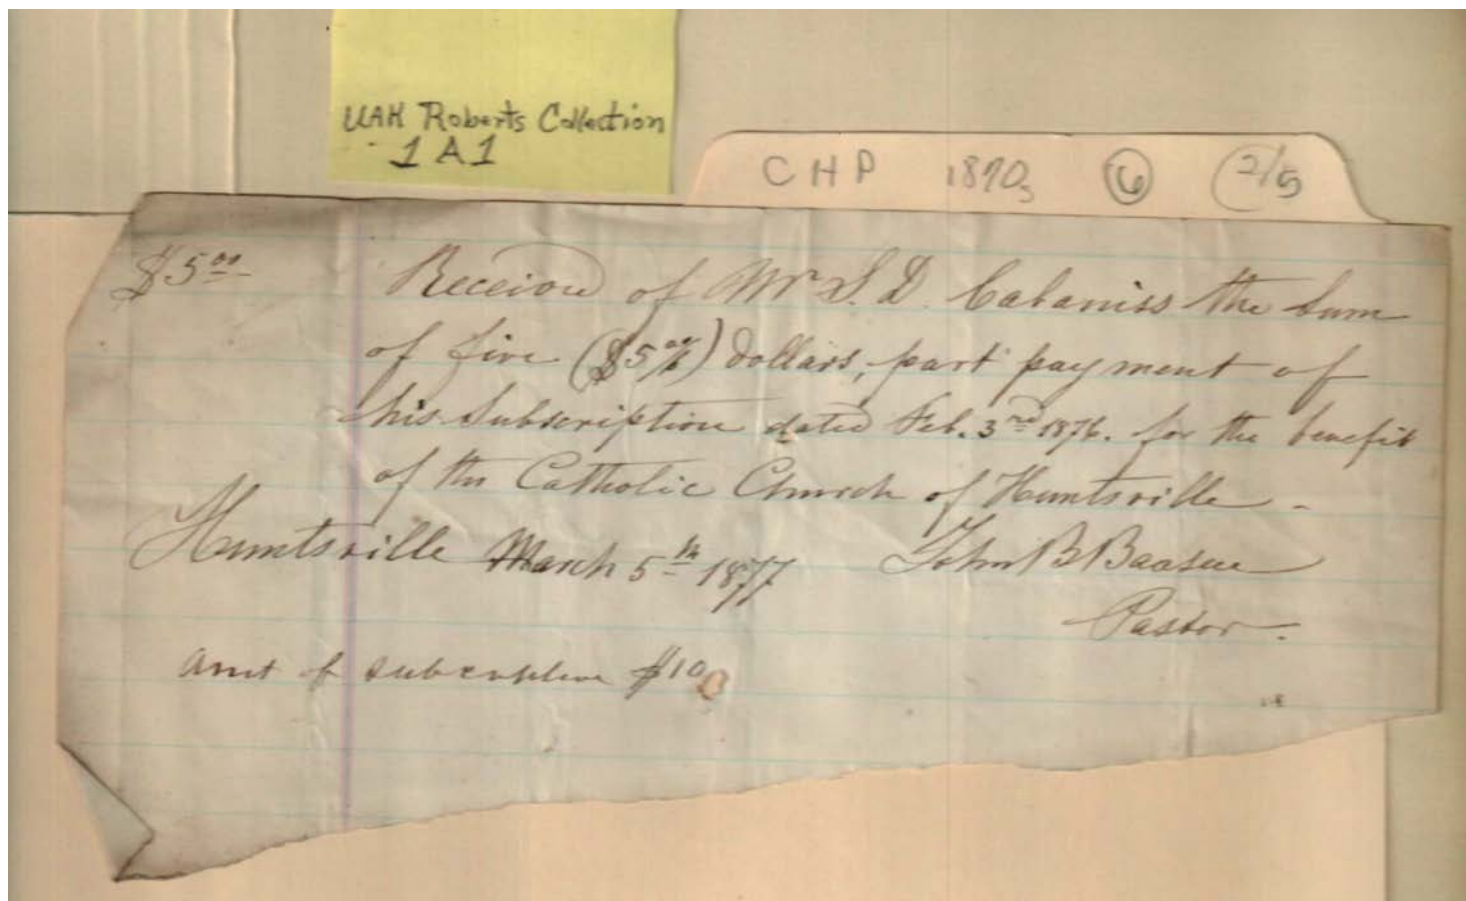 UAH Roberts Collection
1 A 1
CHP 1870s 6 2/5
$5.00 Received of Mr S. D. Cabaniss the Sum
of five ($5 00/100) dollars, part payment of
his Subscription dated Feb. 3rd 1876. for the benefit
of the Catholic Church of Huntsville -
Huntsville March 5th 1877 John B Baasen
Pastor.
Amt of subscription $10